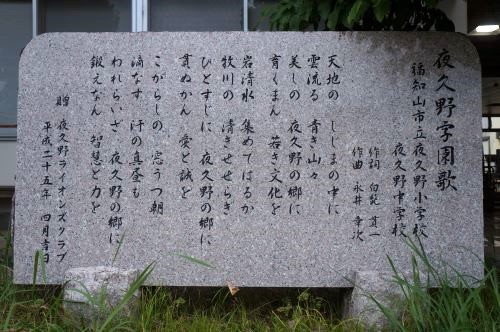 夜久野学園歌
福知山市立夜久野小学校
夜久野中学校
作詞 白乾 真一
作曲 永井 幸次
天地の しじまの中に
雲流る 青き山々
美しの 夜久野の郷に
育くまん 若き文化を
岩清水 集めてはるか
牧川の 清きせせらぎ
ひとすじに 夜久野の郷に
貫ぬかん 愛と誠を
こがらしの 窓うつ朝
滴なす 汗の真昼も
われらいざ 夜久野の郷に
鍛えなん 智慧と力を
贈 夜久野ライオンズクラブ
平成二十五年 四月吉日